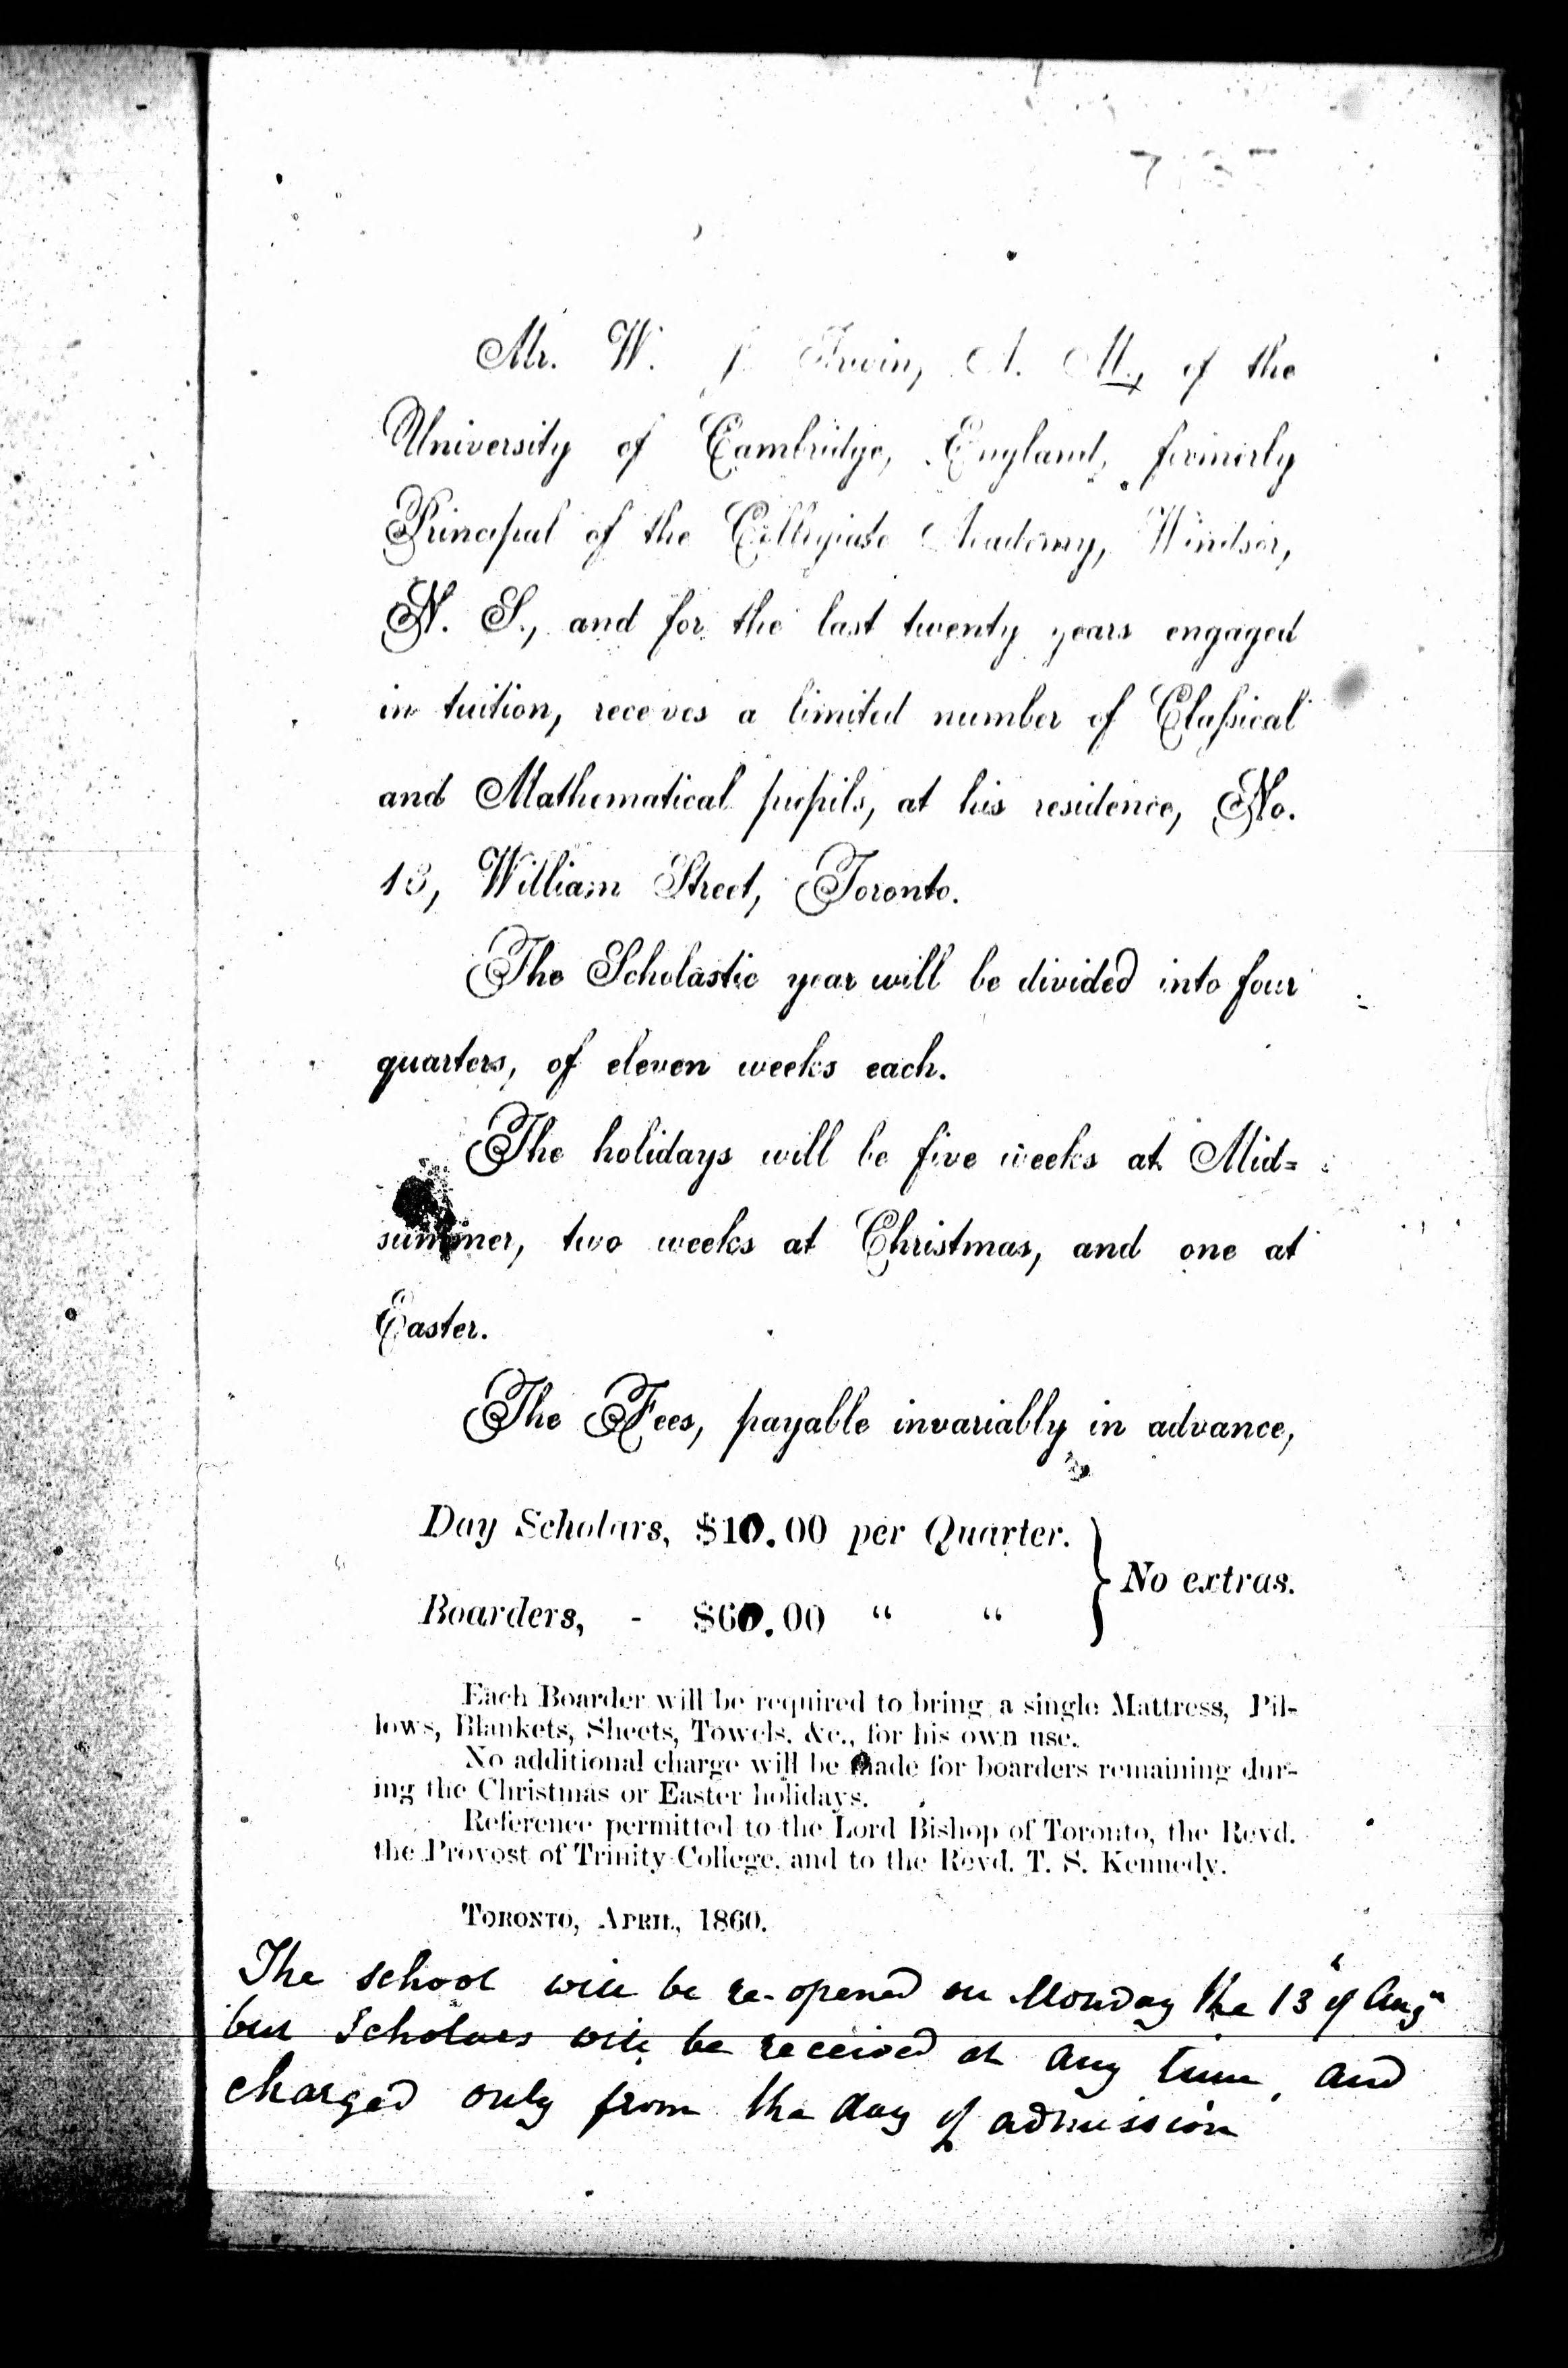 Mr. W. Irwin, A. M., of the
University of Cambridge, England, formerly
Principal of the Collegiate Academy, Windsor,
N. S., and for the last twenty years engaged
in tuition, receives a limited number of Classical
and Mathematical pupils, at his residence, No.
13, William Street, Toronto.
The Scholastic year will be divided into four
quarters, of eleven weeks each.
The holidays will be five weeks at Mid=
summer, two weeks at Christmas, and one at
Easter.
The Fees, payable invariably in advance,
Day Scholars, $10.00 per Quarter.
Boarders, - $60.00 “ “
} No extras.
Each Boarder will be required to bring a single Mattress, Pil-
lows, Blankets, Sheets, Towels, &c., for his own use.
No additional charge will be made for boarders remaining dur-
ing the Christmas or Easter holidays.
Reference permitted to the Lord Bishop of Toronto, the Revd.
the Provost of Trinity College, and to the Revd. T. S. Kennedy.
TORONTO, APRIL, 1860.
The school will be re-opened on Monday the 13 of Aug
but Scholars will be received at any time, and
charged only from the day of admission